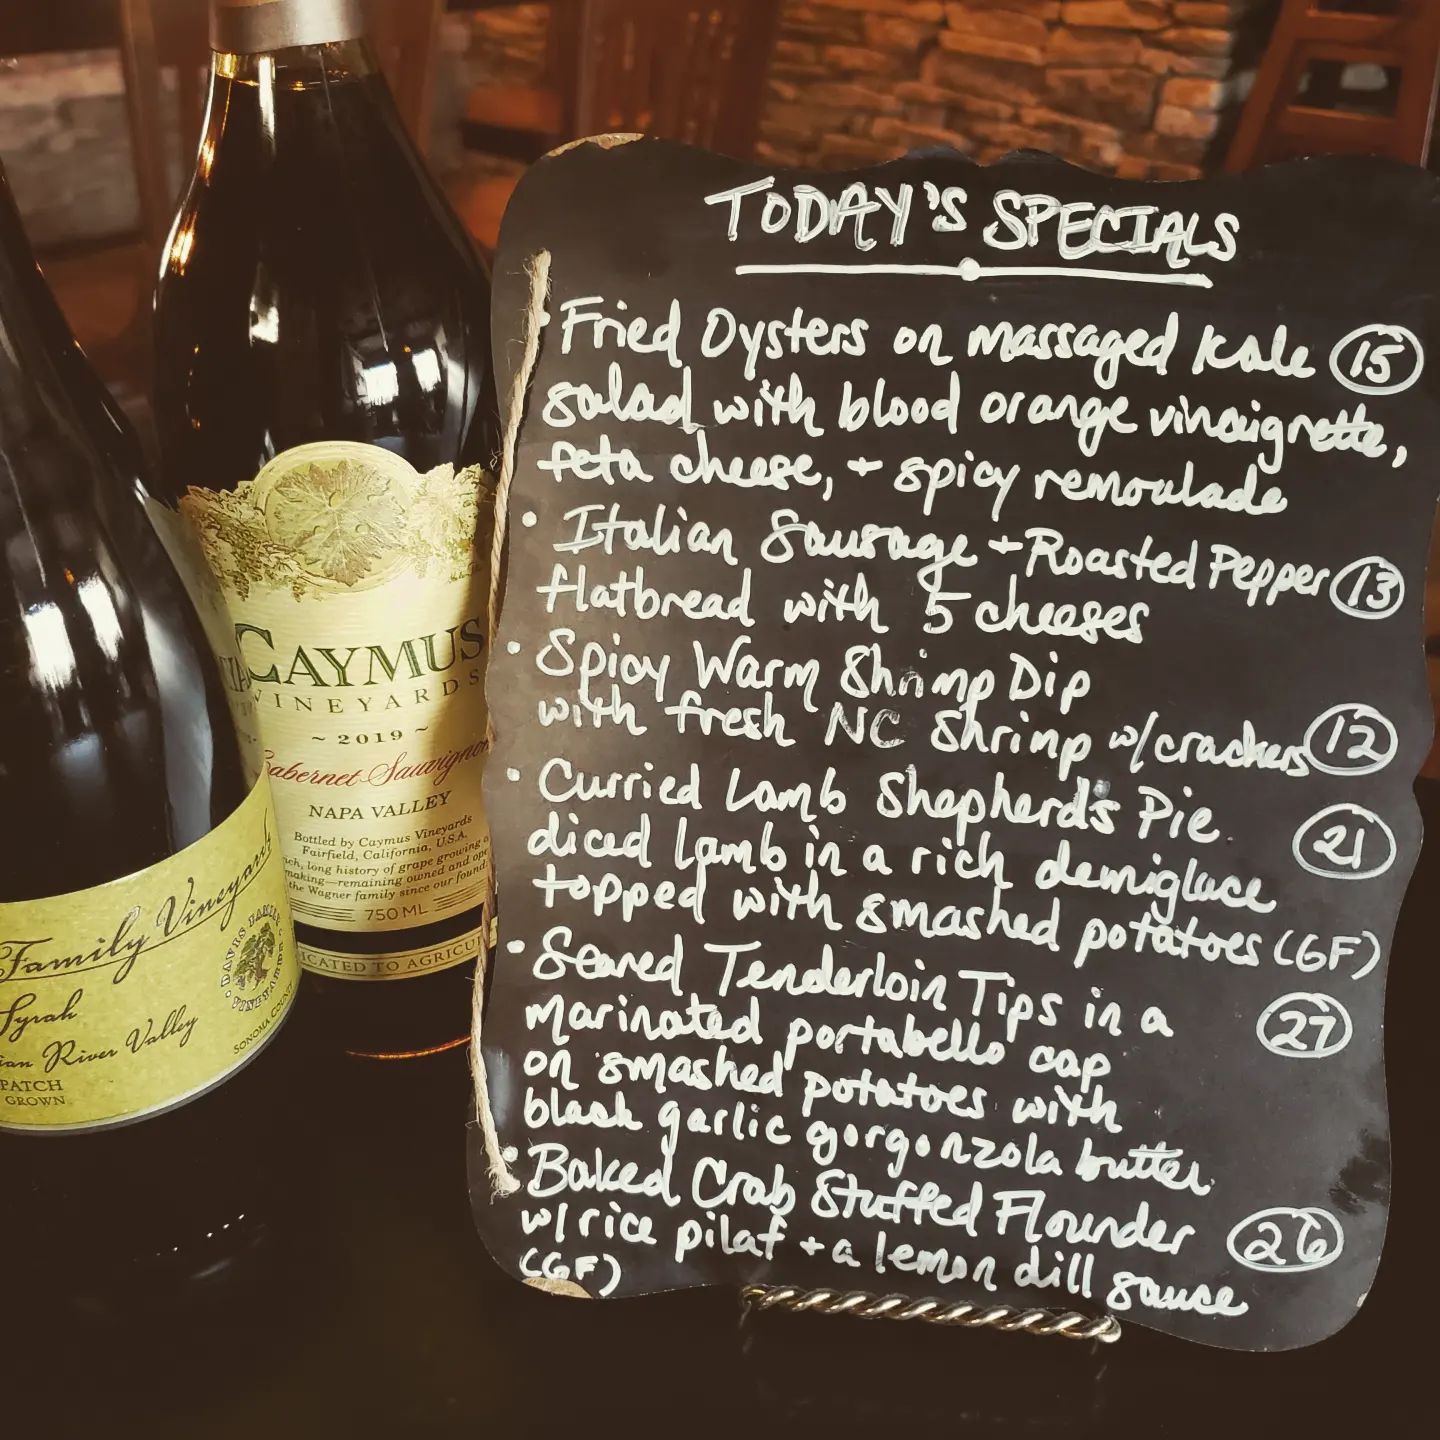 TODAY'S SPECIALS
• Fried Oysters on massaged kale (15)
salad with blood orange vinaigrette,
feta cheese, + spicy remoulade
• Italian Sausage + Roasted Pepper (13)
flatbread with 5 cheeses
• Spicy Warm Shrimp Dip
with fresh NC shrimp w/crackers (12)
• Curried Lamb Shepherd's Pie (21)
diced lamb in a rich demiglace
topped with smashed potatoes (GF)
• Seared Tenderloin Tips in a (27)
marinated portabello cap
on smashed potatoes with
black garlic gorgonzola butter
• Baked Crab Stuffed Flounder (26)
w/rice pilaf + a lemon dill sauce
(GF)
CAYMUS
VINEYARDS
~ 2019 ~
Cabernet Sauvignon
NAPA VALLEY
Bottled by Caymus Vineyards
Fairfield, California, U.S.A.
long history of grape growing
making—remaining owned and
the Wagner family since our
750 ML
DICATED TO AGRICU
Family Vineyards
Syrah
ian River Valley
PATCH
GROWN
DAVIS FAMILY VINEYARDS
SONOMA COUNTY